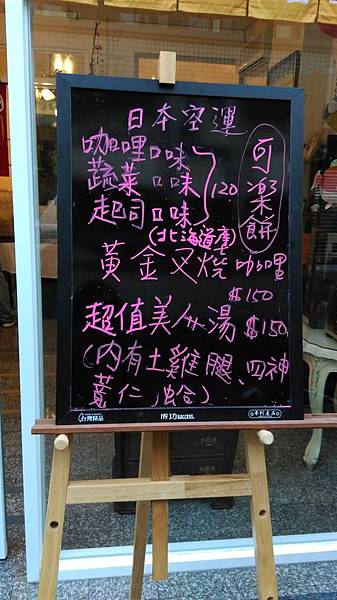 日本空運
咖哩口味
蔬菜口味
起司口味
120
可樂餅
(北海道產)
黃金叉燒咖哩
$150
超值美人湯 $150
(內有土雞腿、四神
薏仁,蛤)
台灣精品
成功success.